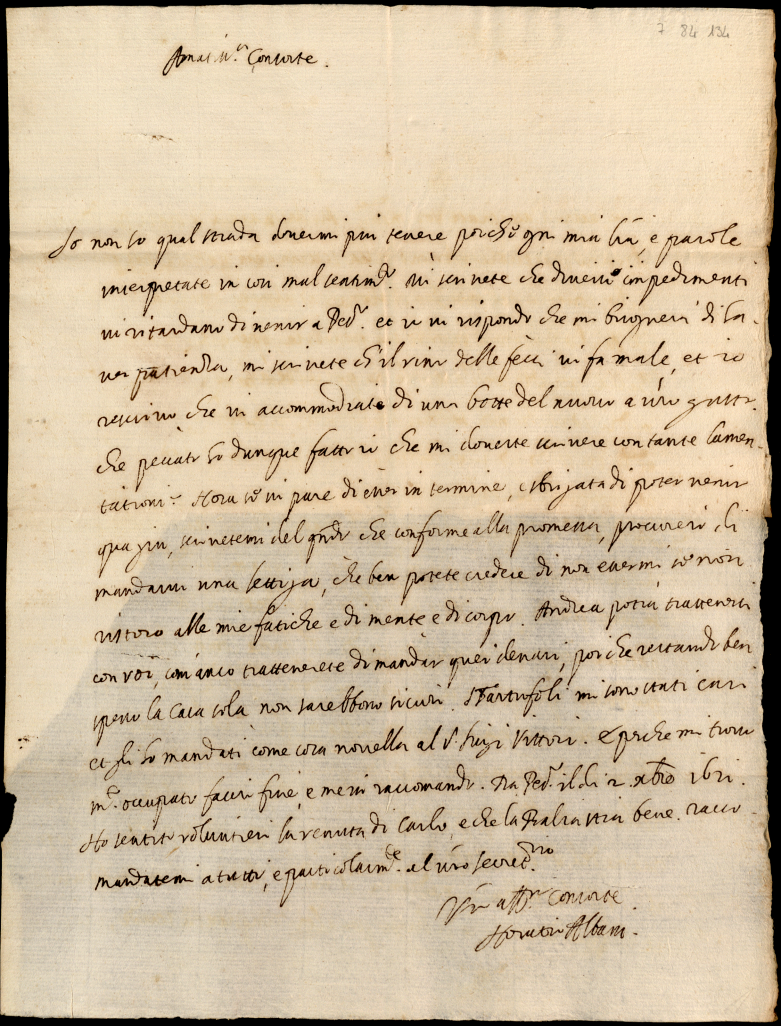 7 84 134
Amat.ma Consorte.
Io non so qual strada dovermi più tenere poiché ogni mia l'ra, e parole
interpretate in così mal sentim.to. Mi scrivete che diversi impedimenti
vi ritardano di venir a Ped.o et io vi rispondo che mi bisognerà di ha-
ver patienza, mi scrivete ch'il vino delle fecci vi fa male, et io
rescrivo che vi accommodiate di una botte del nuovo a v'ro gusto.
che peccato ho dunque fatto io che mi dovete scrivere con tante lamen-
tationi. Hora se vi pare di esser in termine, e sbrigata di poter venir
qua giu, scrivetemi del q'ndo che conforme alla promessa, procurerò di
mandarvi una lettiga, che ben potete credere di non essermi se non
ristoro alle mie fatiche e di mente e di corpo. Andrea potrà trattenersi
con voi, com'anco trattenerete di mandar quei denari, poiche restando ben
spesso la casa sola non sarebbono sicuri. I Tartufoli mi sono stati cari
et gli ho mandati come cosa novella al S. Luigi Vittori. E perche mi trovo
m.o occupato faccio fine, e me vi raccomando. Da Ped.o il di 2 xbre 1621.
Ho sentito volontieri la venuta di Carlo, e che la Balia stia bene. racco-
mandatemi a tutti, e particolarm.te al v'ro secret.rio
V'ro aff.mo Consorte
Horatio Albani.